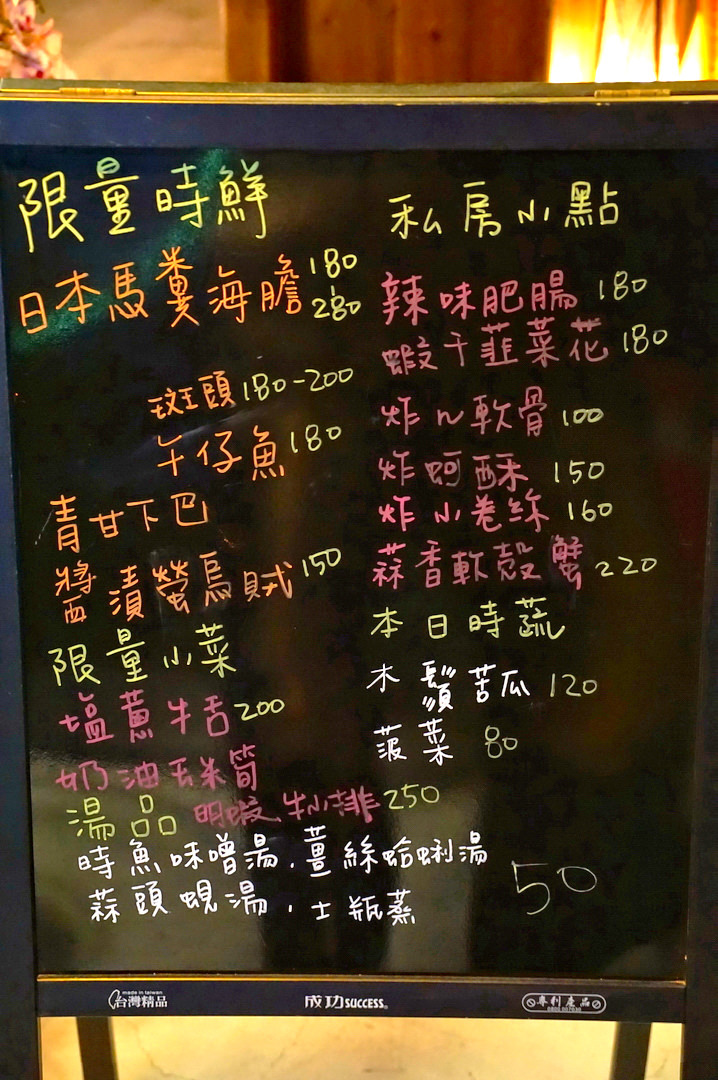 限量時鮮
日本馬糞海膽 180-280
斑頭 180-200
午仔魚 180
青甘下巴
醬漬螢烏賊 150
限量小菜
塩蔥牛舌 200
奶油玉米筍
明蝦牛小排 250
湯品
時魚味噌湯.薑絲蛤蜊湯
蒜頭蜆湯,土瓶蒸
50
私房小點
辣味肥腸 180
蝦干韮菜花 180
炸ㄟ軟骨 100
炸蚵酥 150
炸小卷絲 160
蒜香軟殼蟹 220
本日時蔬
木鬚苦瓜 120
菠菜 80
made in taiwan
台灣精品
成功 SUCCESS®
專利產品